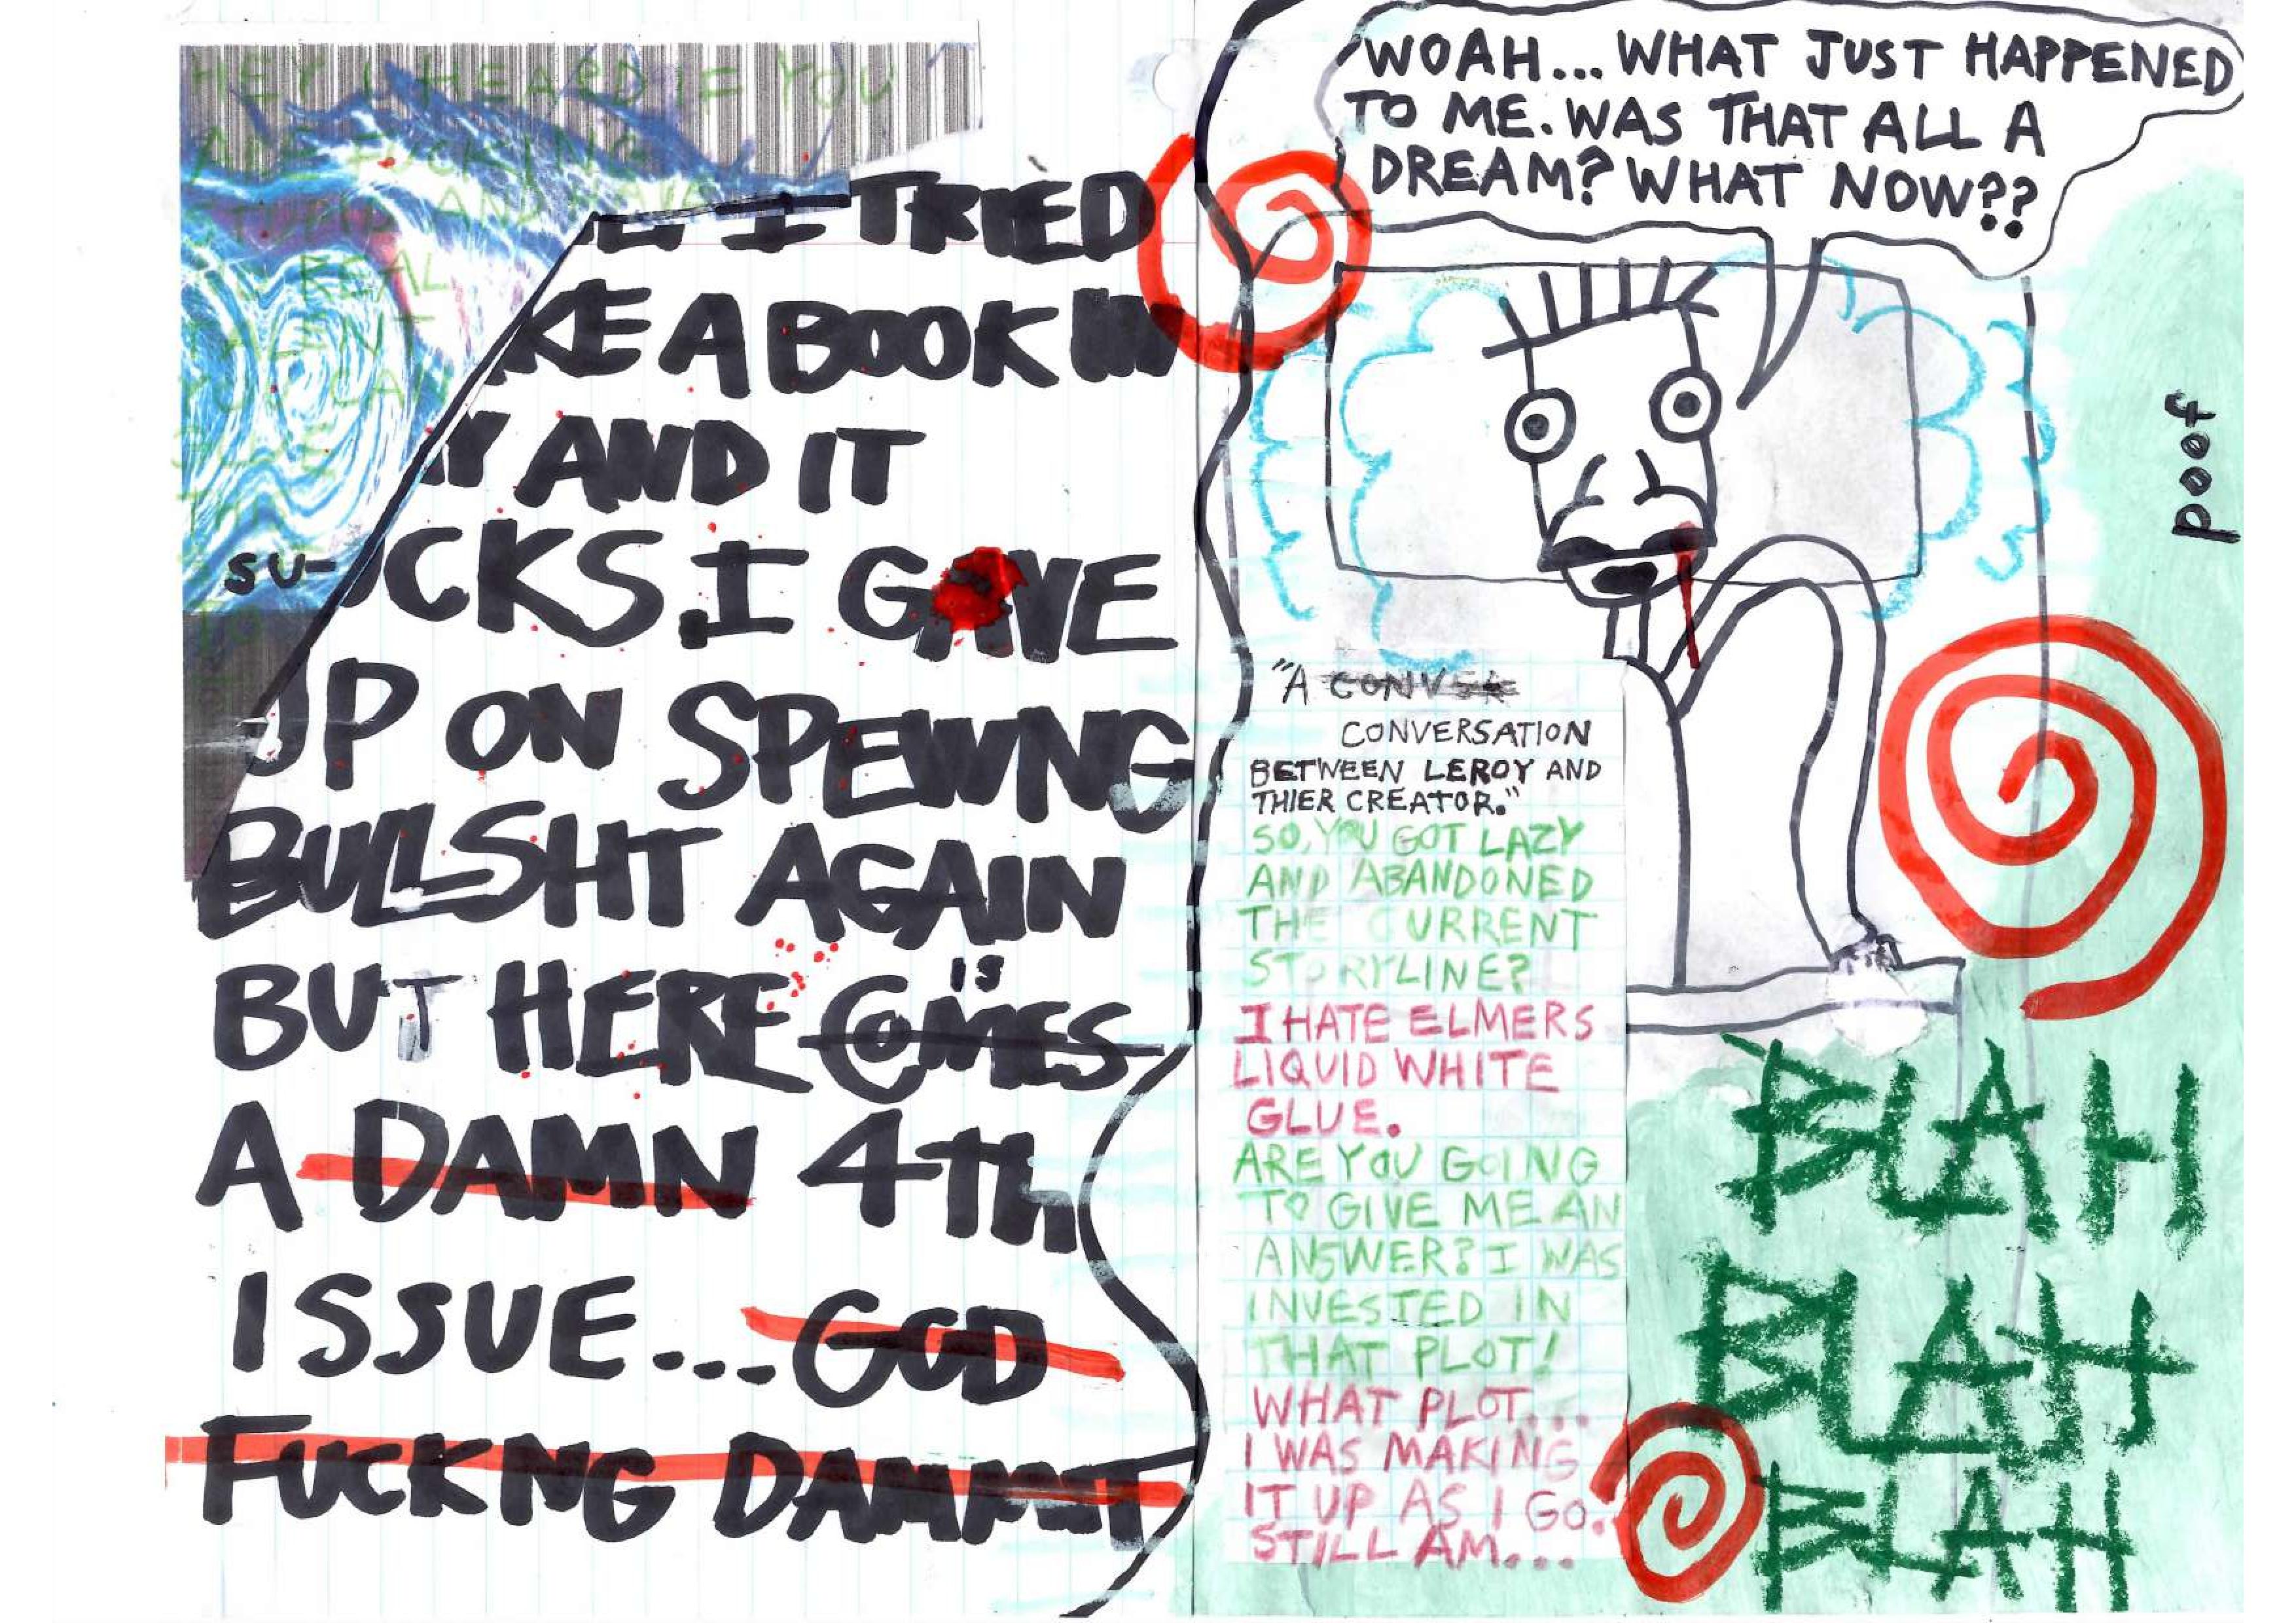 HEY I HEARD IF YOU
ARE FUCKING
AND HAVE
REAL
I TRIED
KE A BOOK IN
Y AND IT
SU-
CKS. I GAVE
UP ON SPEWNG
BULLSHT AGAIN
BUT HERE COMES
IS
A DAMN 4th
ISSUE... GOD
FUCKNG DAMMIT
WOAH... WHAT JUST HAPPENED
TO ME. WAS THAT ALL A
DREAM? WHAT NOW??
poof
"A CONVER
CONVERSATION
BETWEEN LEROY AND
THIER CREATOR."
SO, YOU GOT LAZY
AND ABANDONED
THE CURRENT
STORYLINE?
I HATE ELMERS
LIQUID WHITE
GLUE.
ARE YOU GOING
TO GIVE ME AN
ANSWER? I WAS
INVESTED IN
THAT PLOT!
WHAT PLOT...
I WAS MAKING
IT UP AS I GO.
STILL AM...
BLAH
BLAH
BLAH